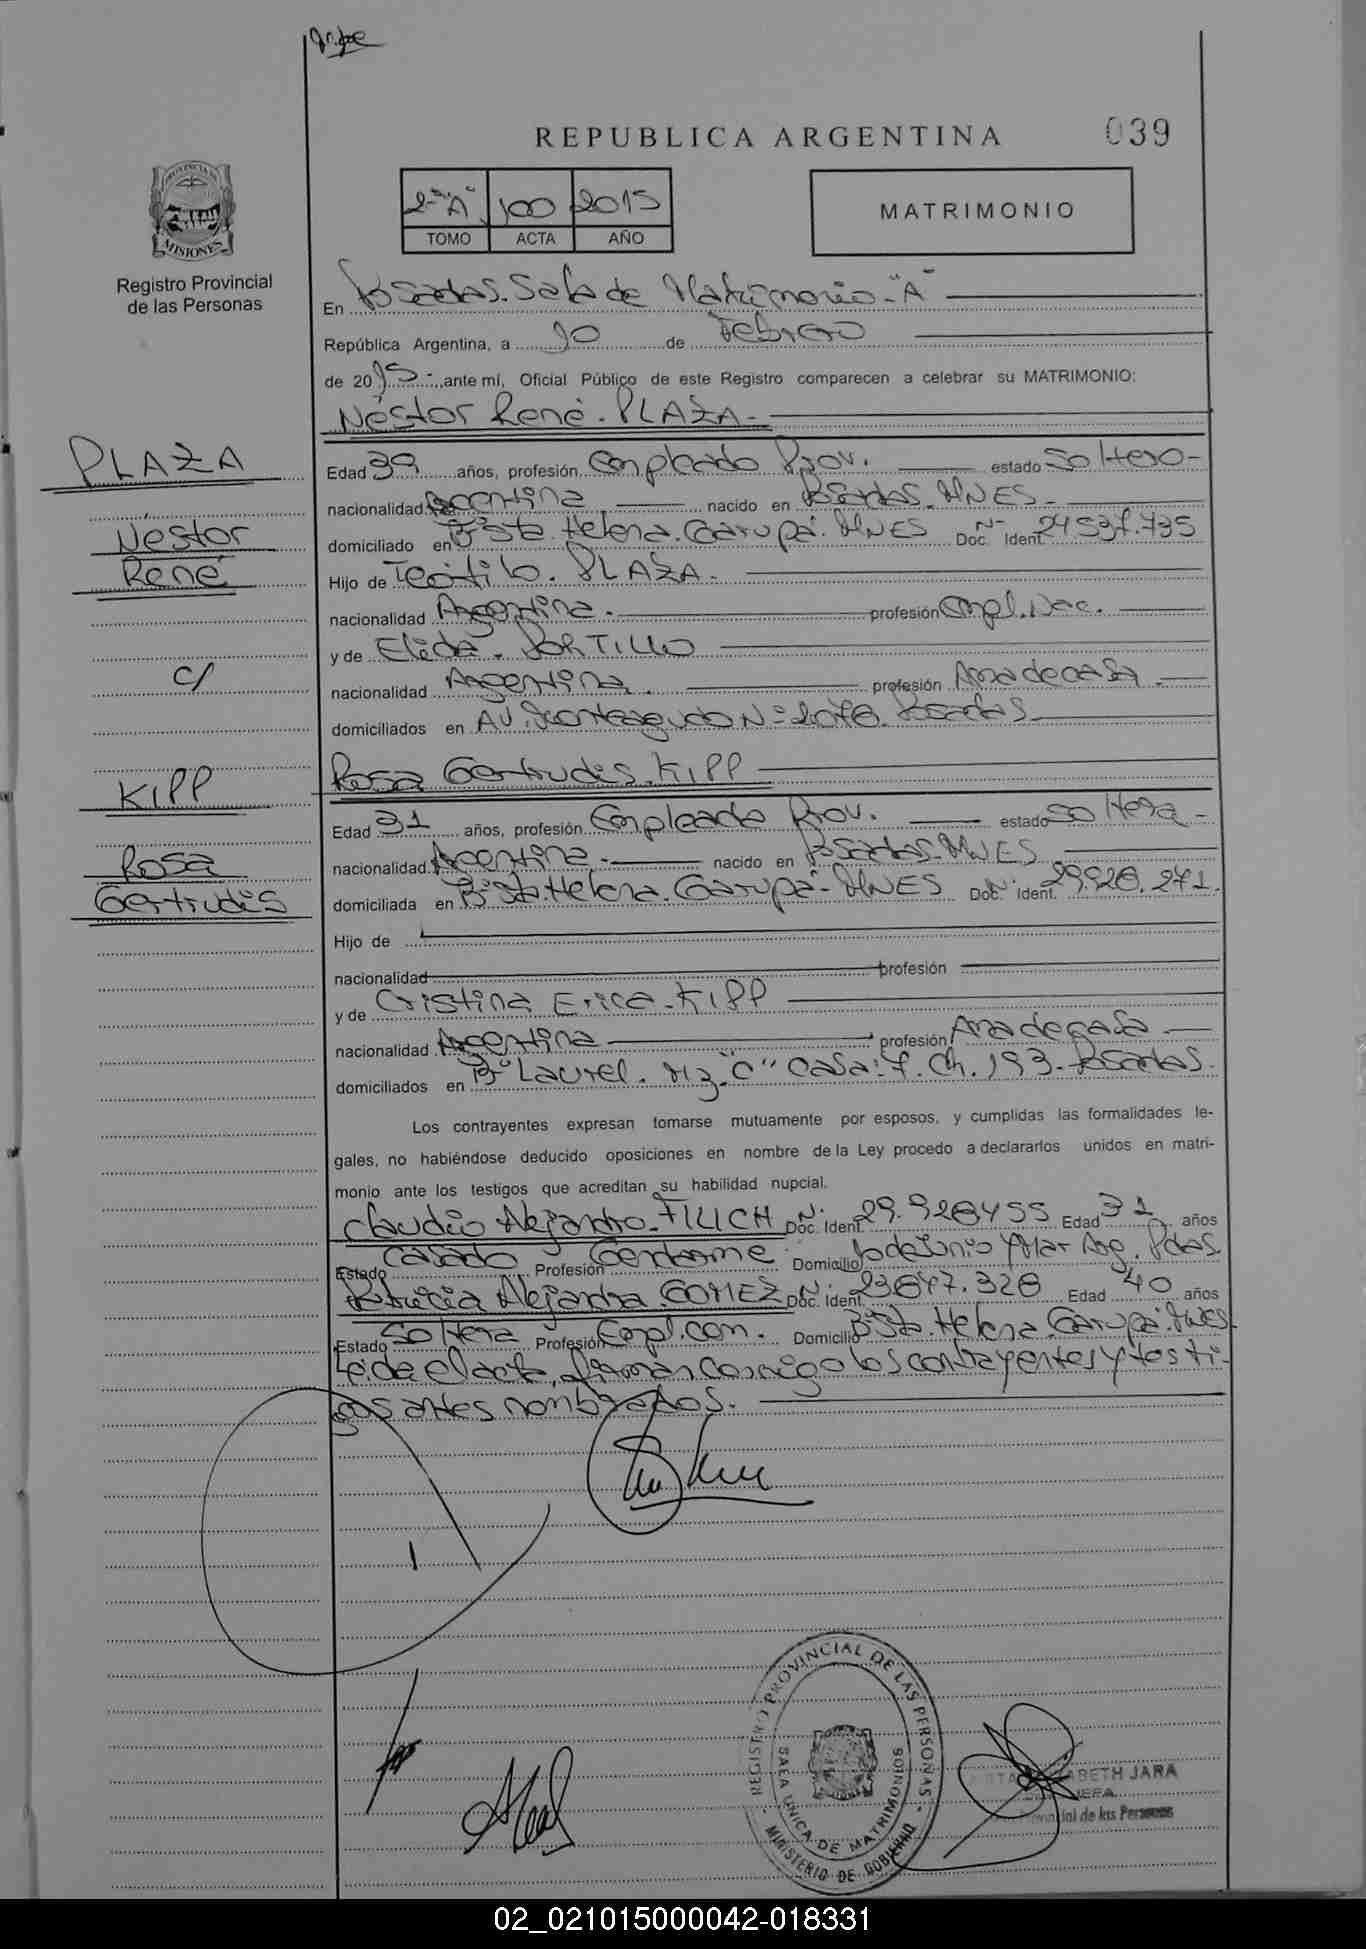 REPUBLICA ARGENTINA
039
PROVINCIA DE MISIONES
Registro Provincial
de las Personas
2º "A" 100 2015
TOMO ACTA AÑO
MATRIMONIO
En Posadas. Sala de Matrimonio "A"
República Argentina, a 10 de Febrero
de 2015 ante mí, Oficial Público de este Registro comparecen a celebrar su MATRIMONIO:
Néstor René. PLAZA.
PLAZA
Néstor
René
c/
KIPP
Rosa
Gertrudis
Edad 39 años, profesión Empleado Prov. estado Soltero
nacionalidad Argentina nacido en Posadas. MNES
domiciliado en Bº Sta. Helena. Garupá. MNES Doc. Nº Ident. 24.537.735
Hijo de Teófilo. PLAZA.
nacionalidad Argentina. profesión Empl. Nac.
y de Elida. PORTILLO
nacionalidad Argentina. profesión Ama de casa
domiciliados en Av. Monteagudo Nº Posadas
Rosa Gertrudis. KIPP
Edad 31 años, profesión Empleada Prov. estado Soltera
nacionalidad Argentina nacido en Posadas. MNES
domiciliada en Bº Sta. Helena. Garupá. MNES Doc. Nº Ident. 29.928.271.
Hijo de
nacionalidad profesión
y de Cristina Erica. KIPP
nacionalidad Argentina profesión Ama de casa
domiciliados en Bº Laurel. Mz. "C" Casa: 7. Ch. 193. Posadas.
Los contrayentes expresan tomarse mutuamente por esposos, y cumplidas las formalidades le-
gales, no habiéndose deducido oposiciones en nombre de la Ley procedo a declararlos unidos en matri-
monio ante los testigos que acreditan su habilidad nupcial.
Claudio Alejandro. FILICH Doc. Nº Ident. 29.928455 Edad 31 años
Estado Casado Profesión Gendarme Domicilio 10 de Junio y Mar Arg. Pdas
Patricia Alejandra. GOMEZ Doc. Nº Ident. 23847.328 Edad 40 años
Estado Soltera Profesión Empl. com. Domicilio Bº Sta. Helena. Garupá. MNES
Leída el acta, firman conmigo los contrayentes y testi-
gos antes nombrados.
REGISTRO PROVINCIAL DE LAS PERSONAS
SALA UNICA DE MATRIMONIOS
MINISTERIO DE GOBIERNO
JARA
JEFA
de las Personas
02_021015000042-018331